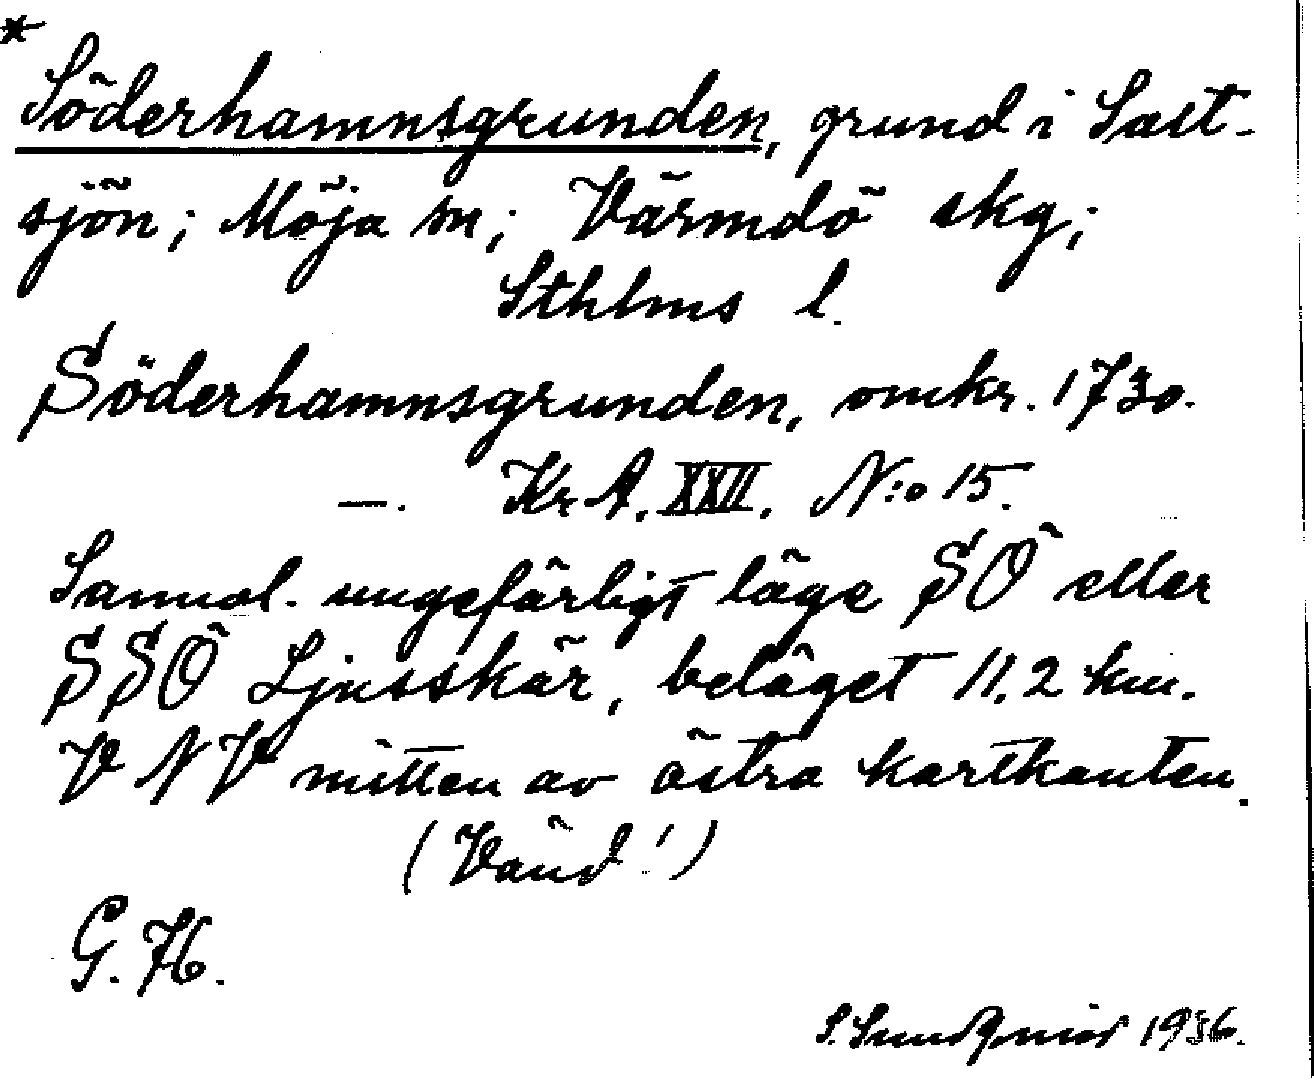 *
Söderhamnsgrunden, grund i Salt-
sjön; Möja sn; Värmdö skg;
Sthlms l.
Söderhamnsgrunden, omkr. 1730.
—. Kr A. XXII. N:o 15.
Sannol. ungefärligt läge SÖ eller
SSÖ Ljusskär, beläget 11,2 km.
V NV mitten av östra kartkanten.
(Vänd!)
G. H.
S. Sundqvist 1936.